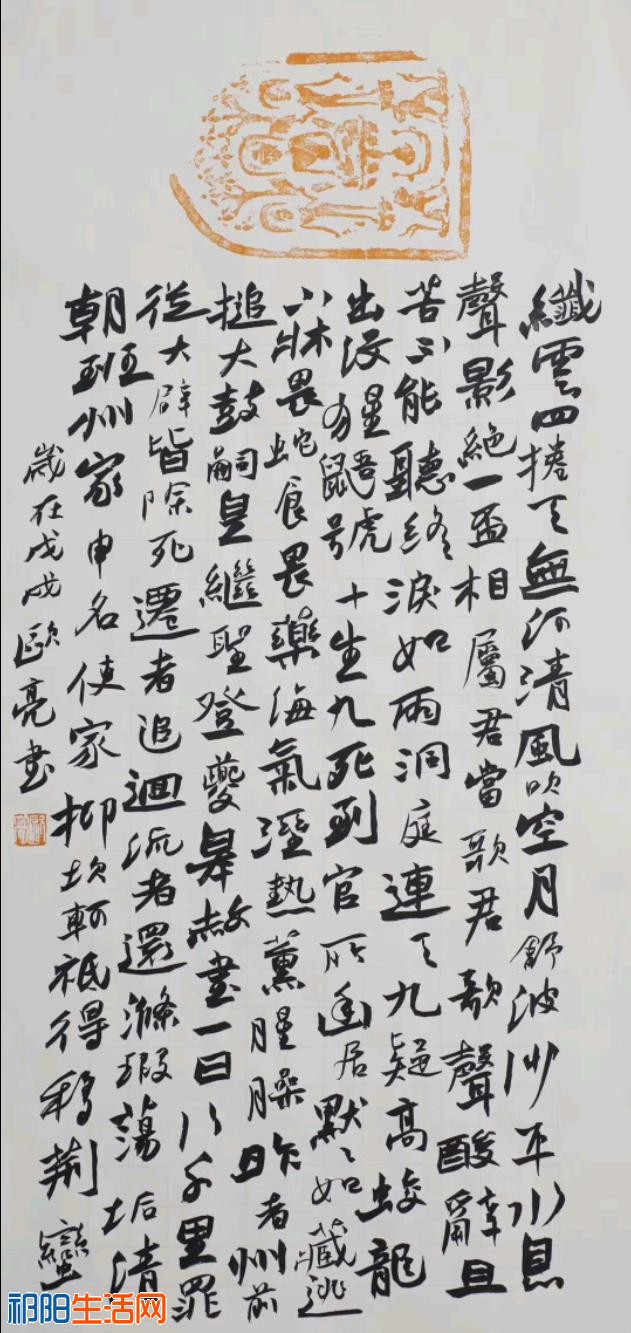 纖雲四捲天無河清風吹空月舒波沙平水息
聲影絕一盃相屬君當歌君歌聲酸辭且
苦不能聽終淚如雨洞庭連天九疑高蛟龍
出沒猩鼯號十生九死到官所幽居默々如藏逃
下牀畏蛇食畏藥海氣溼熱薰腥臊昨者州前
搥大鼓嗣皇繼聖登夔皋赦書一日行千里罪
從大辟皆除死遷者追迴流者還滌瑕蕩垢清
朝班州家申名使家抑坎軻祗得移荊蠻
歲在戊戌歐亮書
祁阳生活网